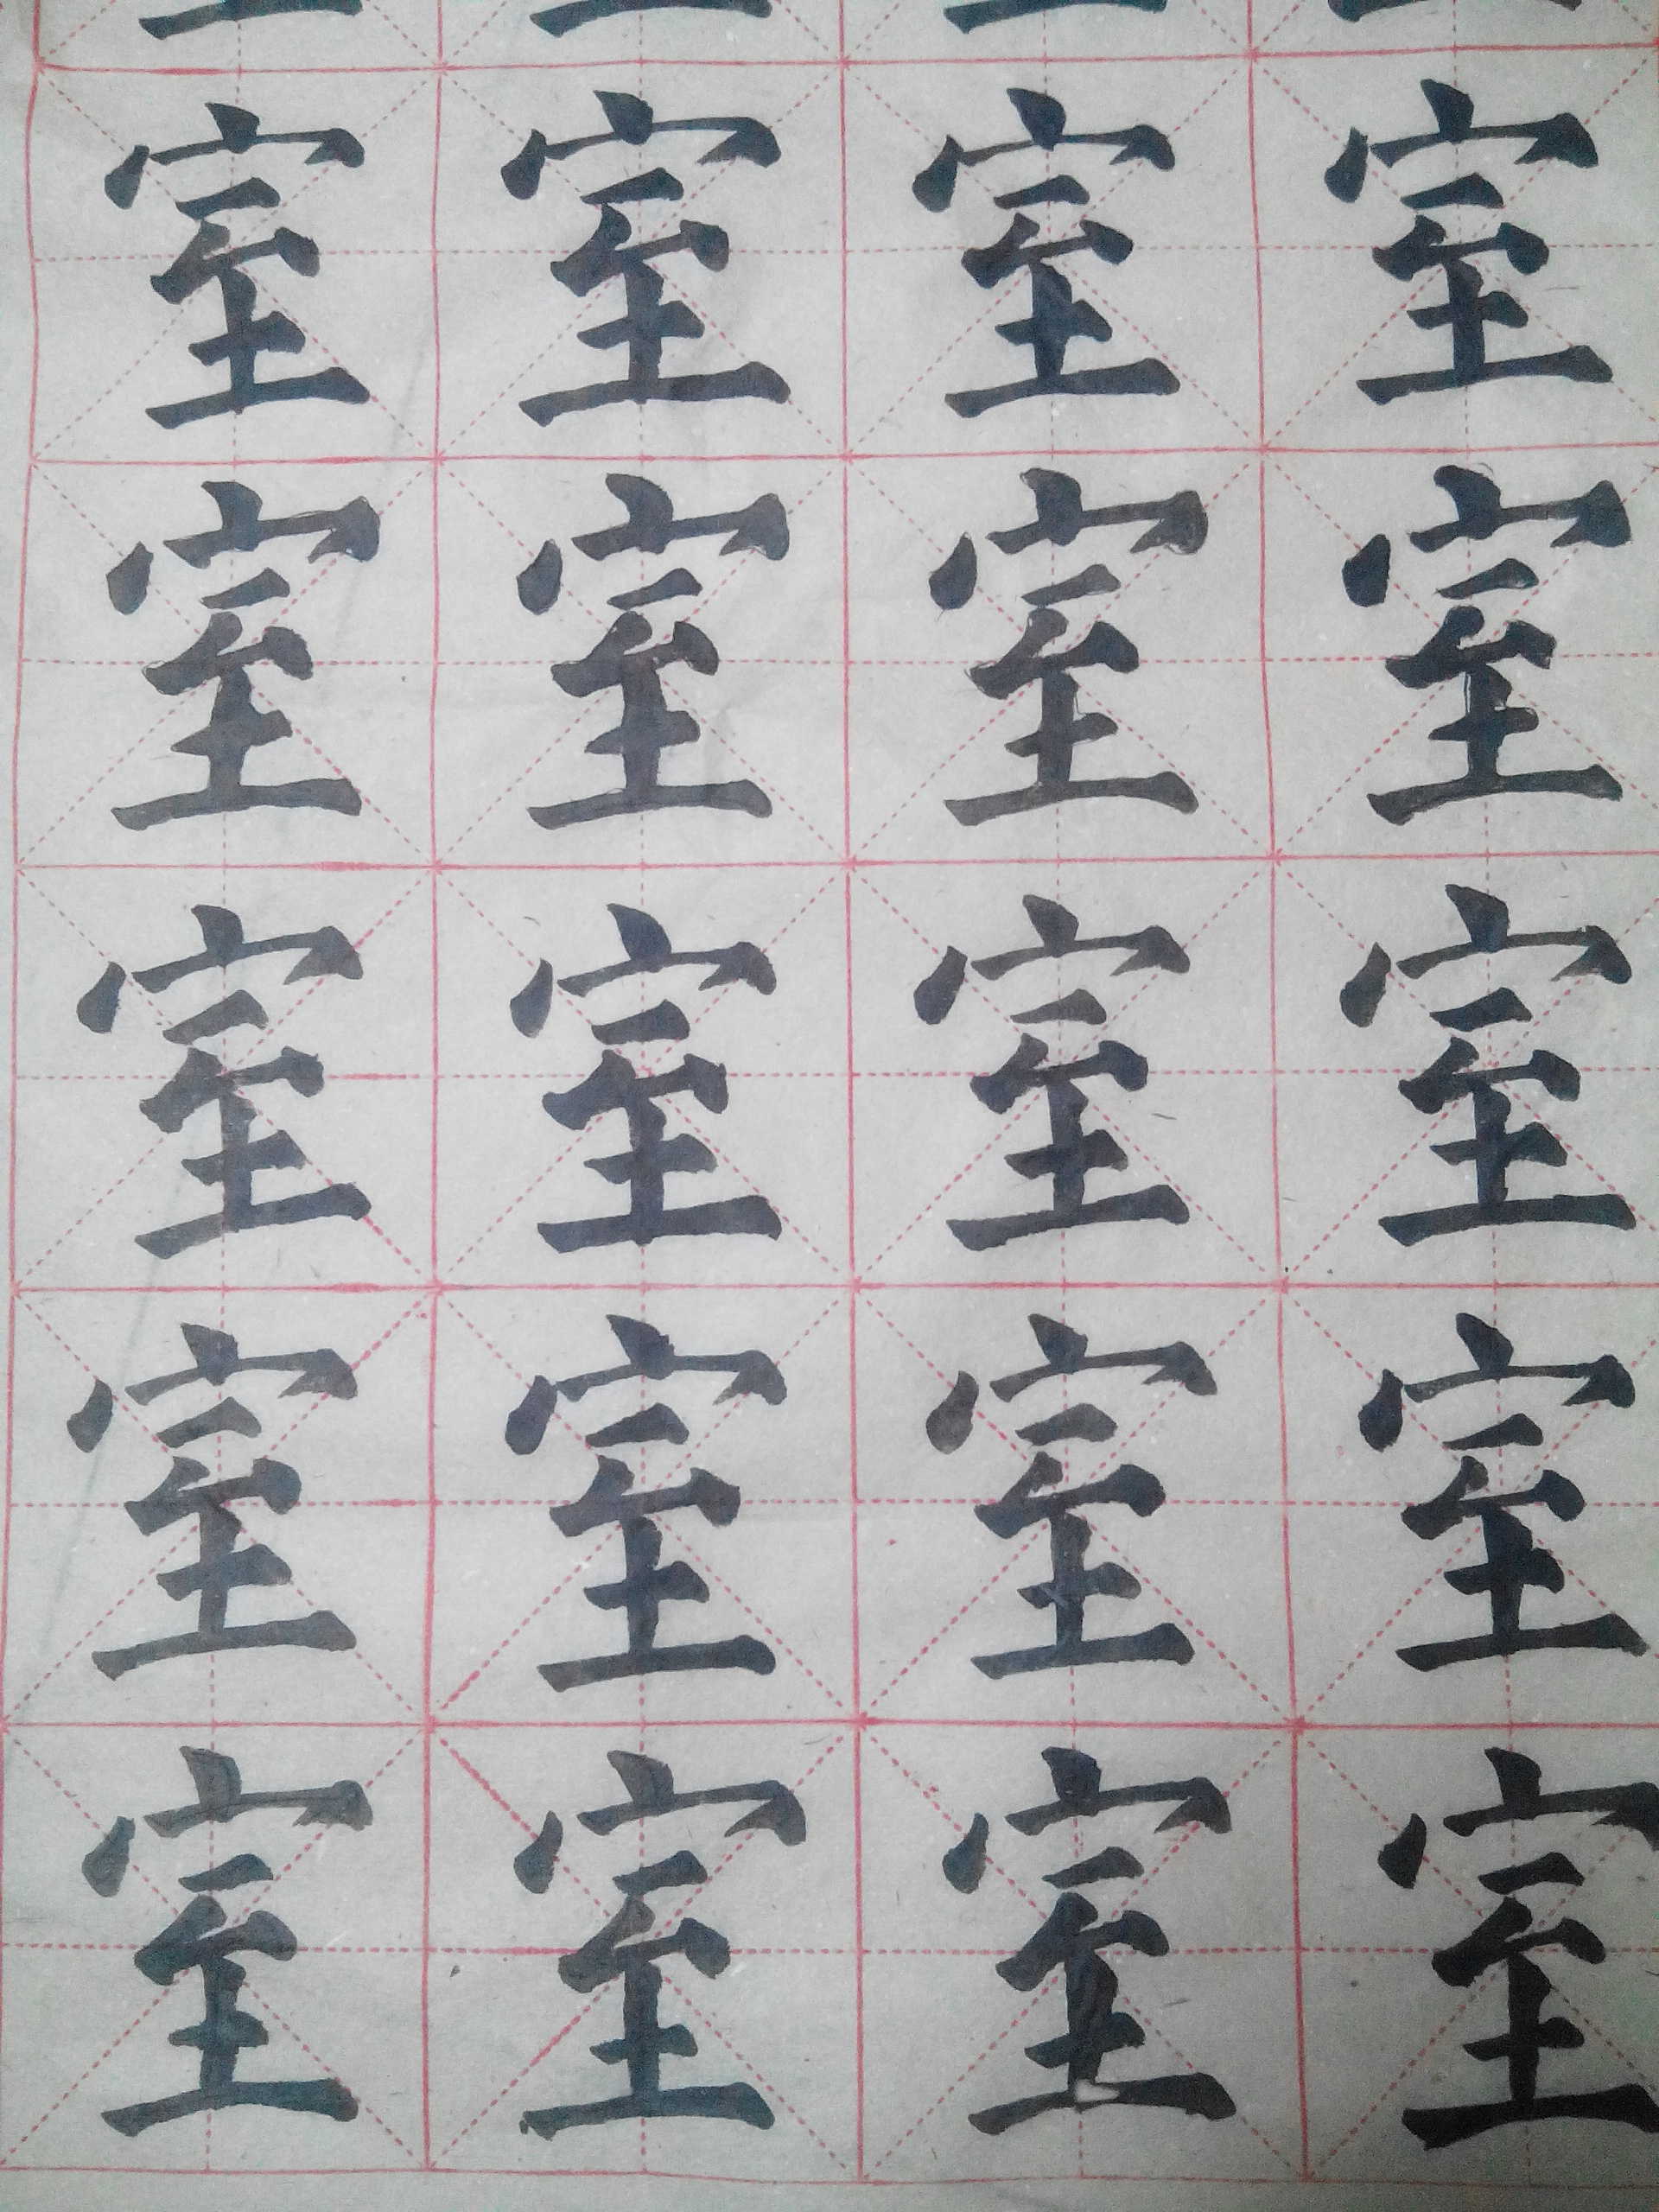 室室室室
室室室室
室室室室
室室室室
室室室室